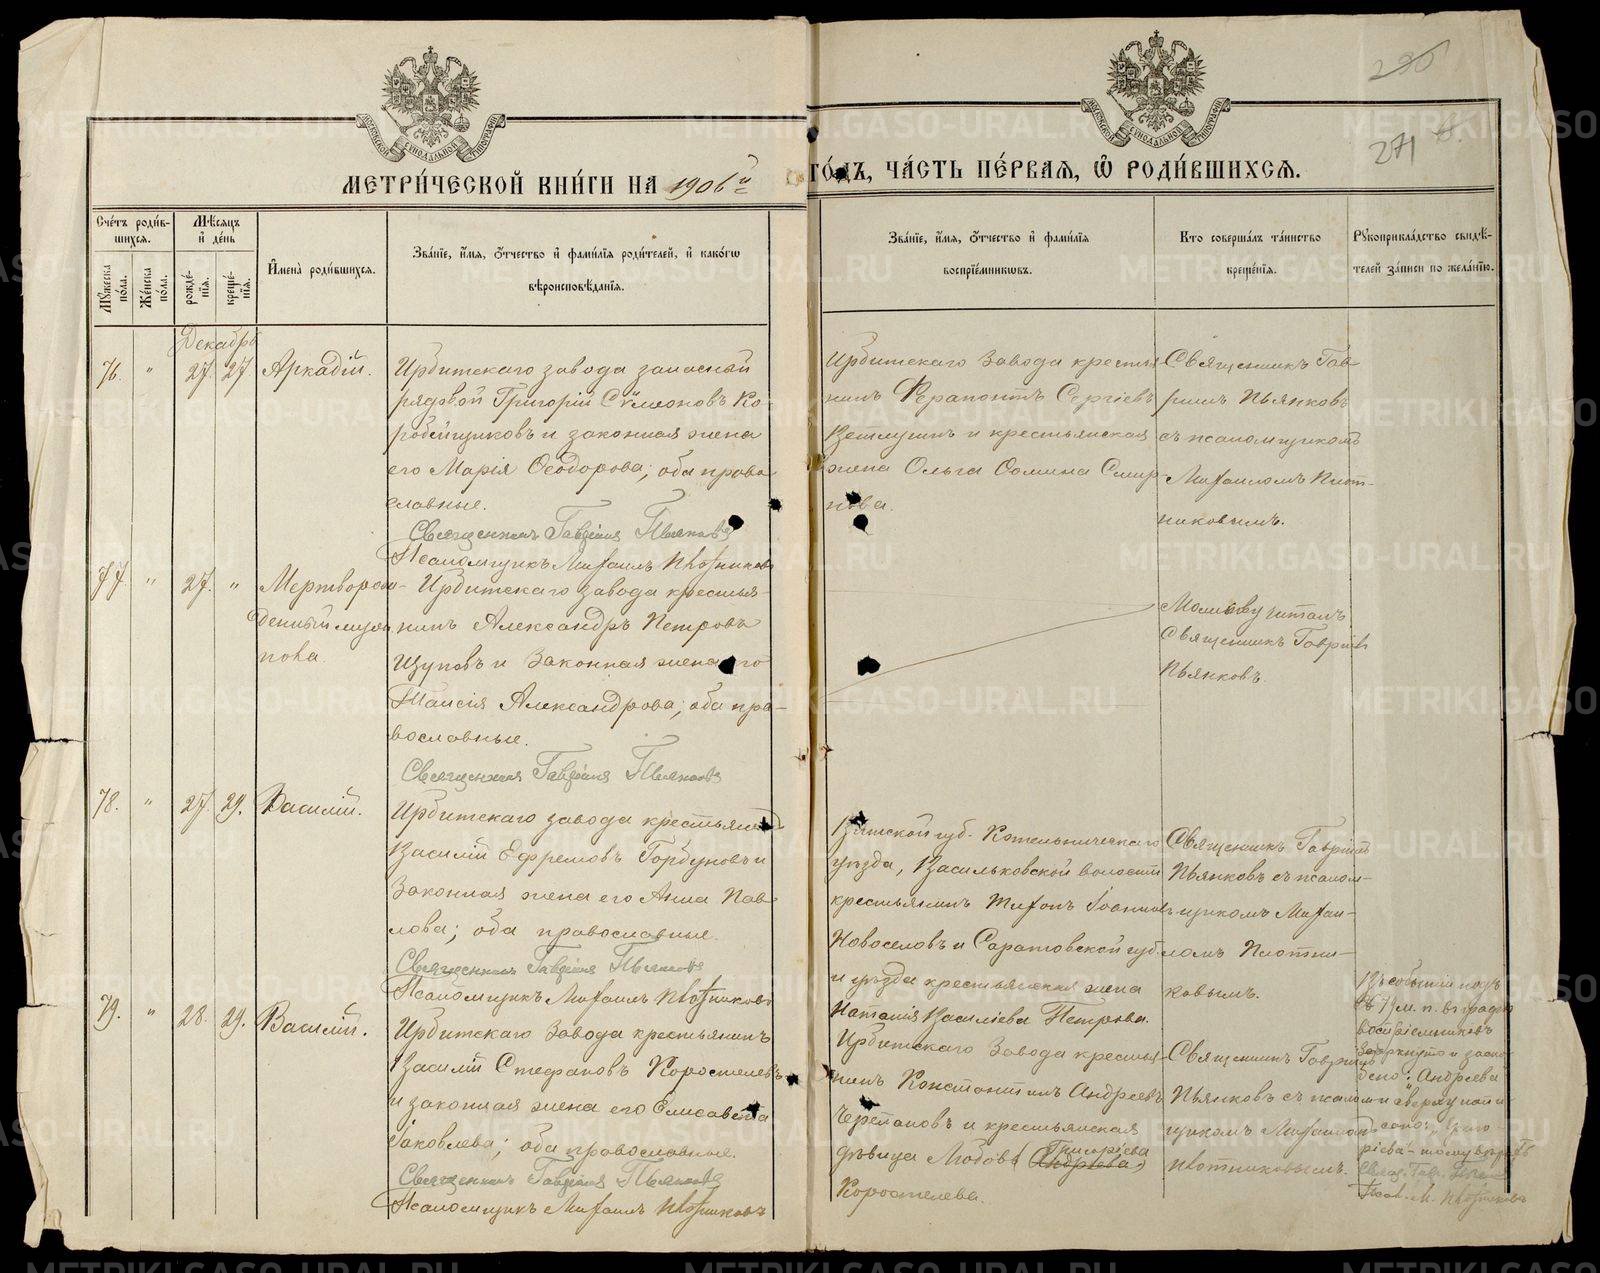 296
271
МЕТРИ́ЧЕСКОЙ КНИ́ГИ НА 1906й ГО́ДЪ, ЧА́СТЬ ПЕ́РВАЯ, Ѡ҆ РОДИ́ВШИХСЯ.
Сче́тъ роди́в-
шихся.
Мꙋжеска по́ла.
Же́нска по́ла.
Мѣ́сяцъ
и҆ де́нь
рожде́нїя.
креще́нїя.
И҆мена̀ роди́вшихся.
Зва́нїе, и҆́мя, ѻ҆́тчество и҆ фами́лїя роди́телей, и҆ како́гѡ
вѣроисповѣ́данїя.
Зва́нїе, и҆́мя, ѻ҆́тчество и҆ фами́лїя
воспрїе́мникѡвъ.
Кто соверша́лъ та́инство
креще́нїя.
Рꙋкоприкла́дство свидѣ́-
телей за́писи по жела́нїю.
Декабрь
76. " 27. 27. Аркадій.
Ирбитскаго завода запасный
рядовой Григорій Сѵмеоновъ Ко-
робейщиковъ и законная жена
его Марія Ѳеодорова; оба право
славные.
Священникъ Гавріилъ Пьянковъ
Псаломщикъ Михаилъ Плотниковъ
Ирбитскаго Завода крестья-
нинъ Ферапонтъ Сергіевъ
Ветлугинъ и крестьянская
жена Ольга Ѳомина Смир-
нова.
Священникъ Гав-
ріилъ Пьянковъ
съ псаломщикомъ
Михаиломъ Плот-
никовымъ.
77 " 27. " Мертворож-
денный
Ирбитскаго завода крестья-
нинъ Александръ Петровъ
Щуповъ и Законная жена его
Таисія Александрова; оба пра-
вославные.
Священникъ Гавріилъ Пьянковъ
Молитву читалъ
Священникъ Гавріилъ
Пьянковъ.
78. " 27. 29. Василій.
Ирбитскаго завода крестьянинъ
Василій Ефремовъ Горбуновъ и
Законная жена его Анна Пав-
лова; оба православные.
Священникъ Гавріилъ Пьянковъ
Псаломщикъ Михаилъ Плотниковъ
Вятской губ. Котельническаго
уѣзда, Васильковской волости
крестьянинъ Тихонъ Іоанновъ
Новоселовъ и Саратовской губ.
и уѣзда крестьянская жена
Наталія Василіева Петрова.
Священникъ Гавріилъ
Пьянковъ съ псалом-
щикомъ Михаи-
ломъ Плотни-
ковымъ.
79. " 28. 29. Василій.
Ирбитскаго Завода крестьянинъ
Василій Стефановъ Коростелевъ
и законная жена его Елисавета
Іаковлева; оба православные.
Священникъ Гавріилъ Пьянковъ
Псаломщикъ Михаилъ Плотниковъ
Ирбитскаго Завода крестья-
нинъ Константинъ Андреевъ
Черепановъ и крестьянская
Григоріева
дѣвица Любовь (Андреева)
Коростелева.
Священникъ Гавріилъ
Пьянковъ съ псалом-
щикомъ Михаиломъ
Плотниковымъ.
Въ событіи подъ
м. п. въ графѣ
воспріемниковъ
зачеркнуто и
"Андреева"
и сверху напи-
сано: "Григо-
ріева" - тому вѣрить
Свящ. Гавр. Пьянковъ
Псал. М. Плотниковъ
METRIKI.GASO-URAL.RU